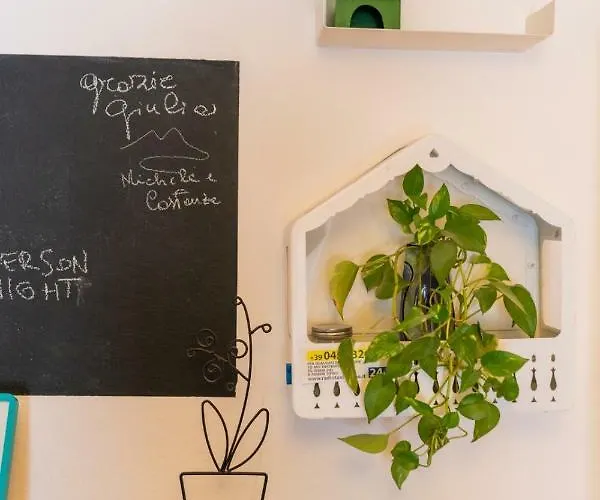 grazie
Giulia
Michele e
Costanza
ERSON
NIGHT
+39 04
24